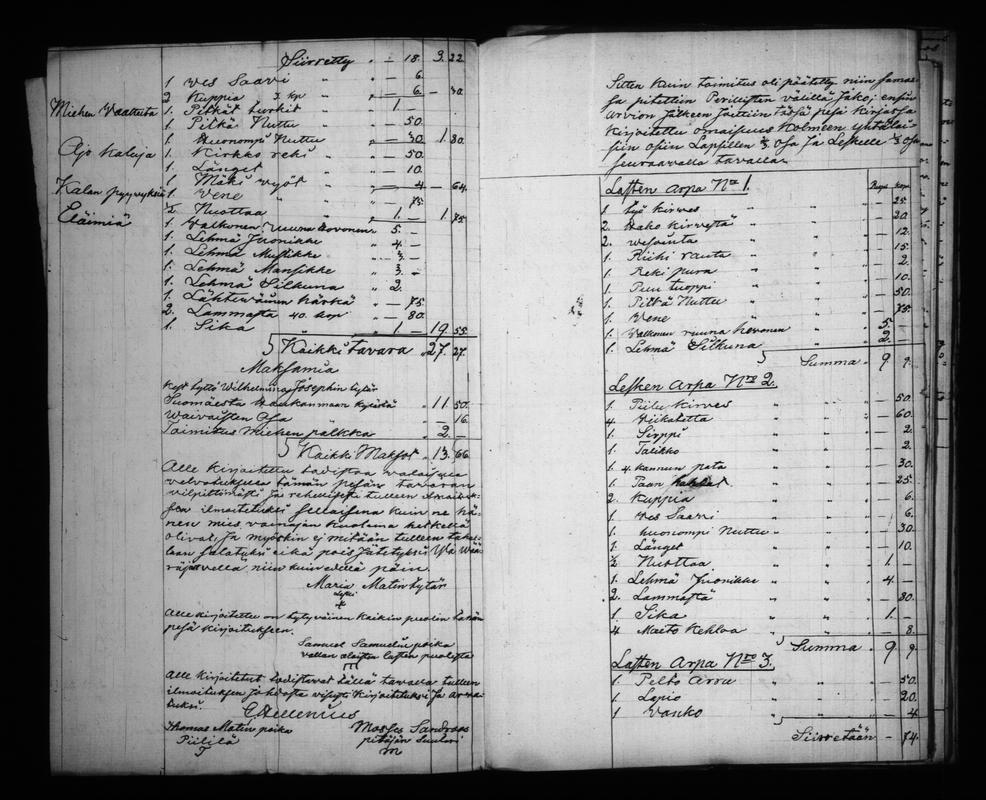 Siirretty " — 18. 9. 22
1 ves Saavi " " — 6.
2 Kuppia 3 kp " " — 6. — 30
Miehen Vaatteita 1. Pitkät turkit " " 1. —
1. Pitkä Nuttu " " — 50.
1. Huonompi Nuttu " — 30 1. 80.
Ajo Kaluja 1. Kirkko reki " " — 50.
1. Länget " " — 10.
1. Mäki vyöt " " — 4 — 64.
Kalan pyyvyksiä 1. Vene " " — 75
½ Nuottaa " " 1. — 1. 75
Eläimiä 1 Valkonen ruuna hevonen 5. —
1. Lehmä Juonikke " 4. —
1. Lehmä Mustikke " 3. —
1. Lehmä Mansikke " 3. —
1. Lehmä Silkuna " 2.
1. Lähtevainen härkä " — 75
2. Lammasta 40. kop " — 80.
1. Sika " " 1. — 19. 55.
Kaikki tavara " 27. 27.
Maksamia
tyttö Wilhelmina Josephin tytär
Suomäesta Haukanmaan kylästä " 11 50.
Waivaisten Osa — 16.
Toimitus miehen palkka " 2. —
Kaikki Maksot " 13. 66.
Alle Kirjoitettu todistaa valaisella
velvotuksella tämän pesän tavaran
vilpittömästi ja rehellisesti tulleen
ilmoitetuksi sellaisena kuin ne
nen mies vainajan kuolema hetkellä
olivat, ja myöskin ej mitään tulleen
salatuksi eikä pois jätetyksi
niin kuin edellä päin.
Maria Matin tytär
Leski
Alle kirjoitettu on tytyväinen kaikin puolin
pesä kirjoitukseen.
Samuel Samuelin poika
vallan alaisten lasten puolesta
Alle Kirjoitetut todistavat tällä tavalla tulleen
ilmoituksen johdosta Kirjoitetuksi ja
tuksi.
C Hellenius
Thomas Matin poika Moses Sandroos
Piililä pitäjän Suutari
Sitten Kuin toimitus oli päätetty niin samas-
sa pidettiin Perillisten välillä Jako; ensin
Arvion jälkeen jaettiin tässä pesä Kirjassa
Kirjoitettu omaisuus Kolmeen yhtäläi-
siin osiin Lapsillen ⅔ osa ja Leskelle ⅓ osa
seuraavalla tavallan
Lasten Arpa Nro 1. Rupl kop.
1 työ kirves " " " — 25.
2. Hako kirvestä " " " — 20.
2. vesointa " " " — 12.
1. Riihi rauta " " " — 15.
1. Reki pura " " " — 2.
1. Puu tuoppi " " " — 10.
1. Pitkä Nuttu " " " — 50.
1. Vene " " " — 75.
1. Valkonen ruuna hevonen " " 5. —
1. Lehmä Silkuna " " 2. —
Summa " 9 9.
Lesken Arpa Nro 2.
1. Piilu kirves " " " — 50.
4. Viikatetta " " " — 60.
1. Sirppi " " " — 2.
1. Talikko " " " — 2.
1. 4. kannun pata " " " — 30.
1. Paan " " " — 25.
2. Kuppia " " " — 6.
1. ves Saavi " " " — 6.
1. huonompi Nuttu " " " — 30.
1. Länget " " " — 10.
½ Nuottaa " " " 1. —
1. Lehmä Juonikke " " " 4. —
2. Lammasta " " " — 80.
1. Sika " " " 1. —
4 Maito Kehloa " " — 8.
Summa " 9 9.
Lasten Arpa Nro 3.
1. Pelto Aura " " " — 50.
1. Lapio " " " — 20.
1 Vanko " " — 4
Siirretään — 74.